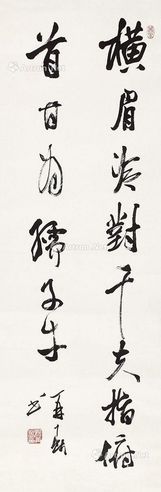 橫眉冷對千夫指俯
首甘为孺子牛